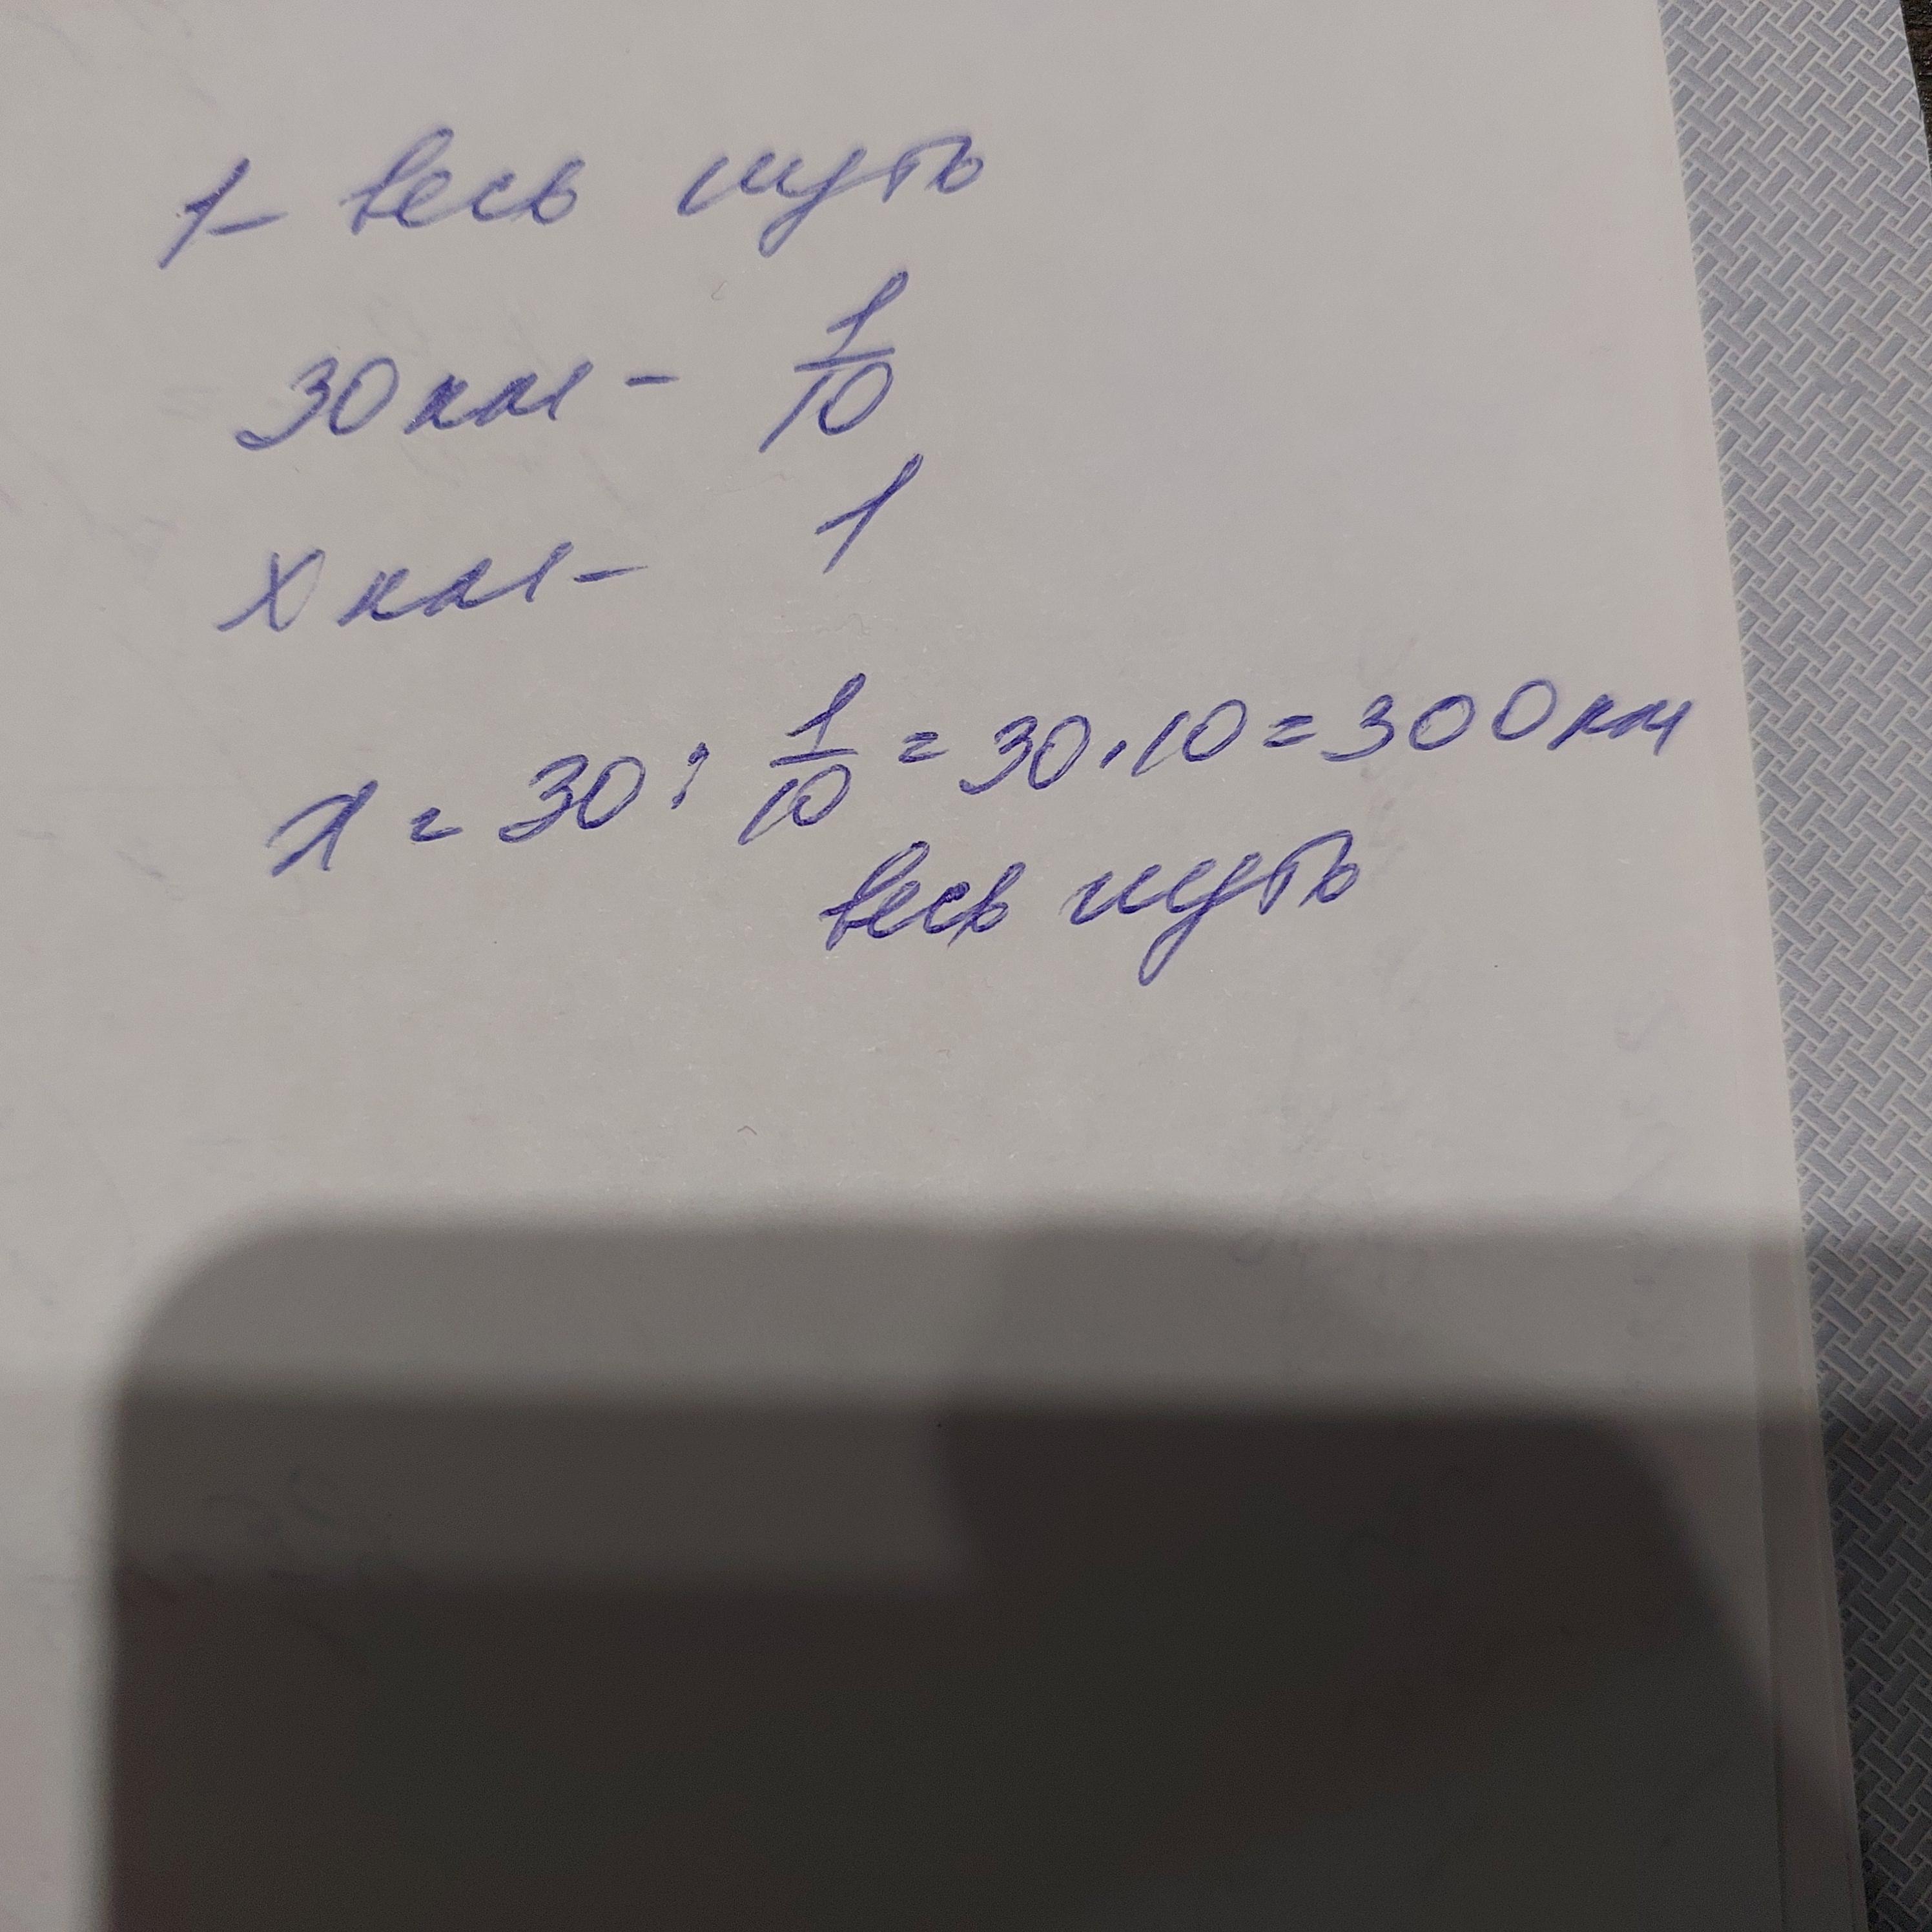 1- весь путь
30 км - 1/10
х км - 1
х = 30 : 1/10 = 30 · 10 = 300 км
весь путь